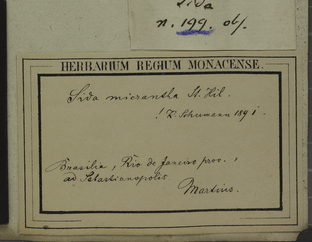 Sida
n. 199. obs.
HERBARIUM REGIUM MONACENSE.
Sida micrantha St. Hil.
! K. Schumann 1891.
Brasilia, Rio de Janeiro prov.,
ad Sebastianopolis.
Martius.